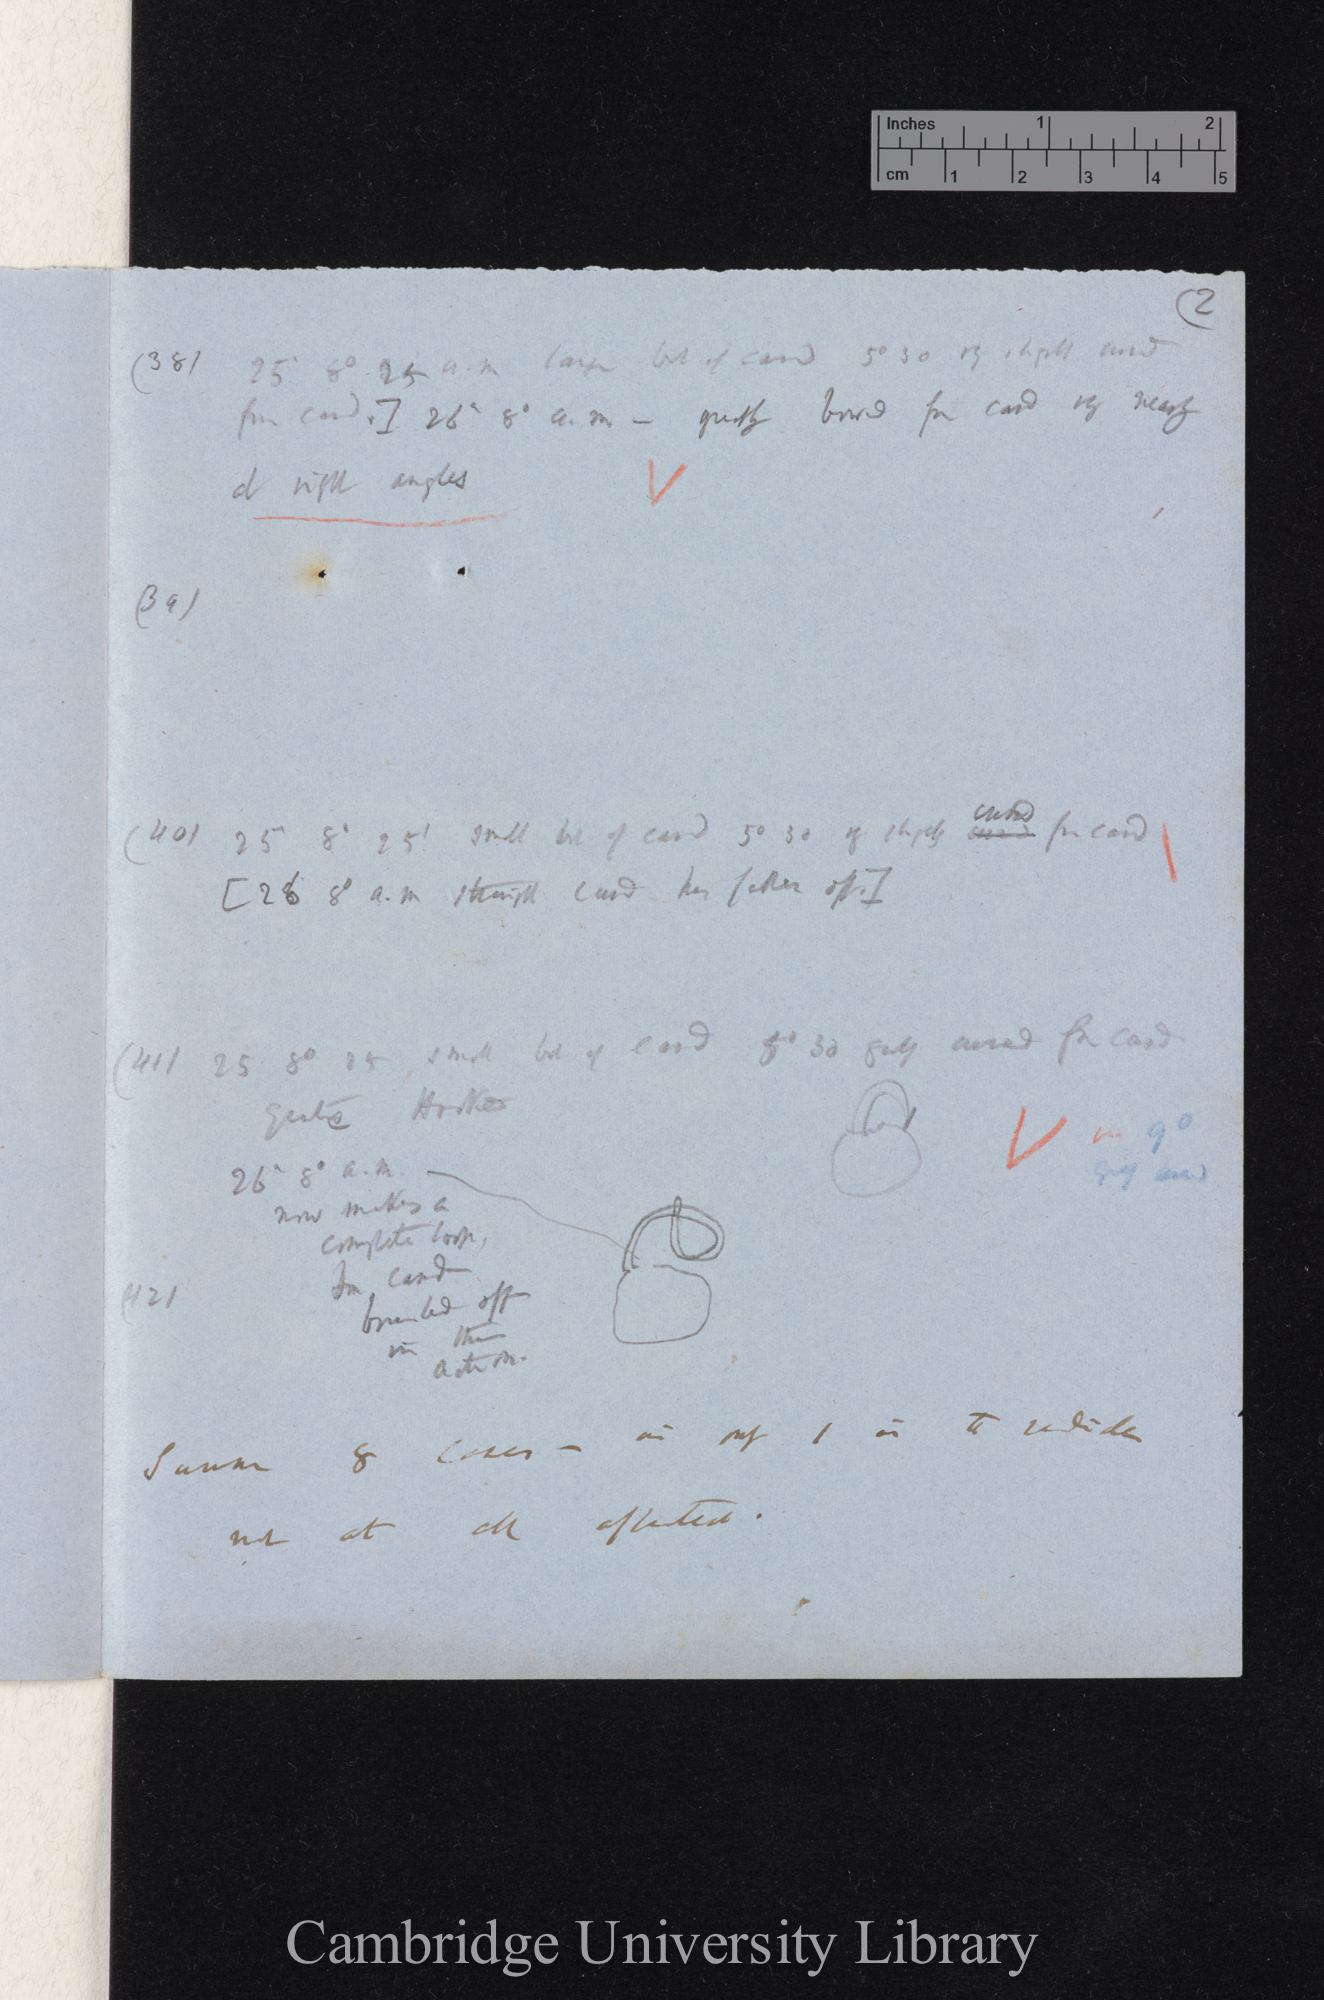 Inches 1 2
cm 1 2 3 4 5
(2
(38) 25 8° 25 a.m large bit of card 5° 30 slightly curved
from card.] 26 8° a.m — greatly bowed from card nearly
at right angles
(39)
(40) 25 8° 25' small bit of card 5° 30 slightly curved from card
[26 8° a.m straight card has fallen off.]
(41) 25 8° 25 small bit of card 5° 30 greatly curved from card
quite Hooked
in 9°
26 8° a.m.
now makes a
complete loop,
card
off
in the
action.
(42)
8 cases — in only 1 is the radicle
not at all affected.
Cambridge University Library